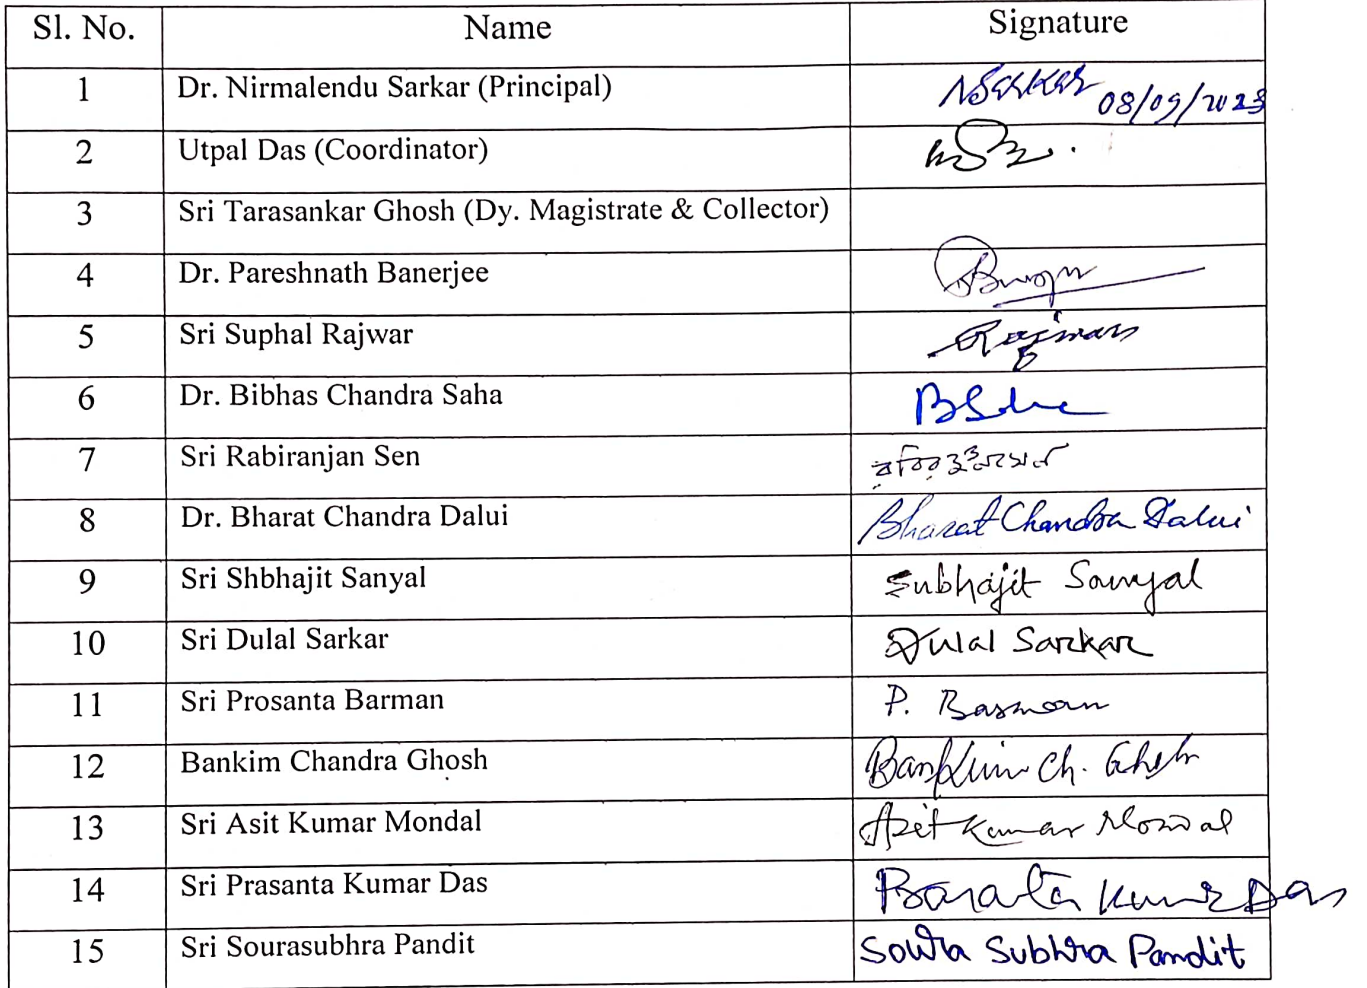 Sl. No. Name Signature
1 Dr. Nirmalendu Sarkar (Principal) NSarkar 08/09/2023
2 Utpal Das (Coordinator)
3 Sri Tarasankar Ghosh (Dy. Magistrate & Collector)
4 Dr. Pareshnath Banerjee
5 Sri Suphal Rajwar Rajwar
6 Dr. Bibhas Chandra Saha BSaha
7 Sri Rabiranjan Sen
8 Dr. Bharat Chandra Dalui Bharat Chandra Dalui
9 Sri Shbhajit Sanyal Subhajit Sanyal
10 Sri Dulal Sarkar Dulal Sarkar
11 Sri Prosanta Barman P. Barman
12 Bankim Chandra Ghosh Bankim Ch. Ghosh
13 Sri Asit Kumar Mondal Asit Kumar Mondal
14 Sri Prasanta Kumar Das Kumar Das
15 Sri Sourasubhra Pandit Soura Subhra Pandit